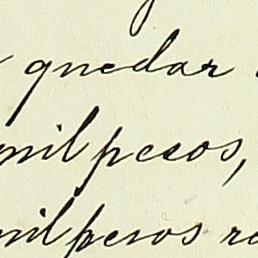 quedar
mil pesos,
mil pesos re